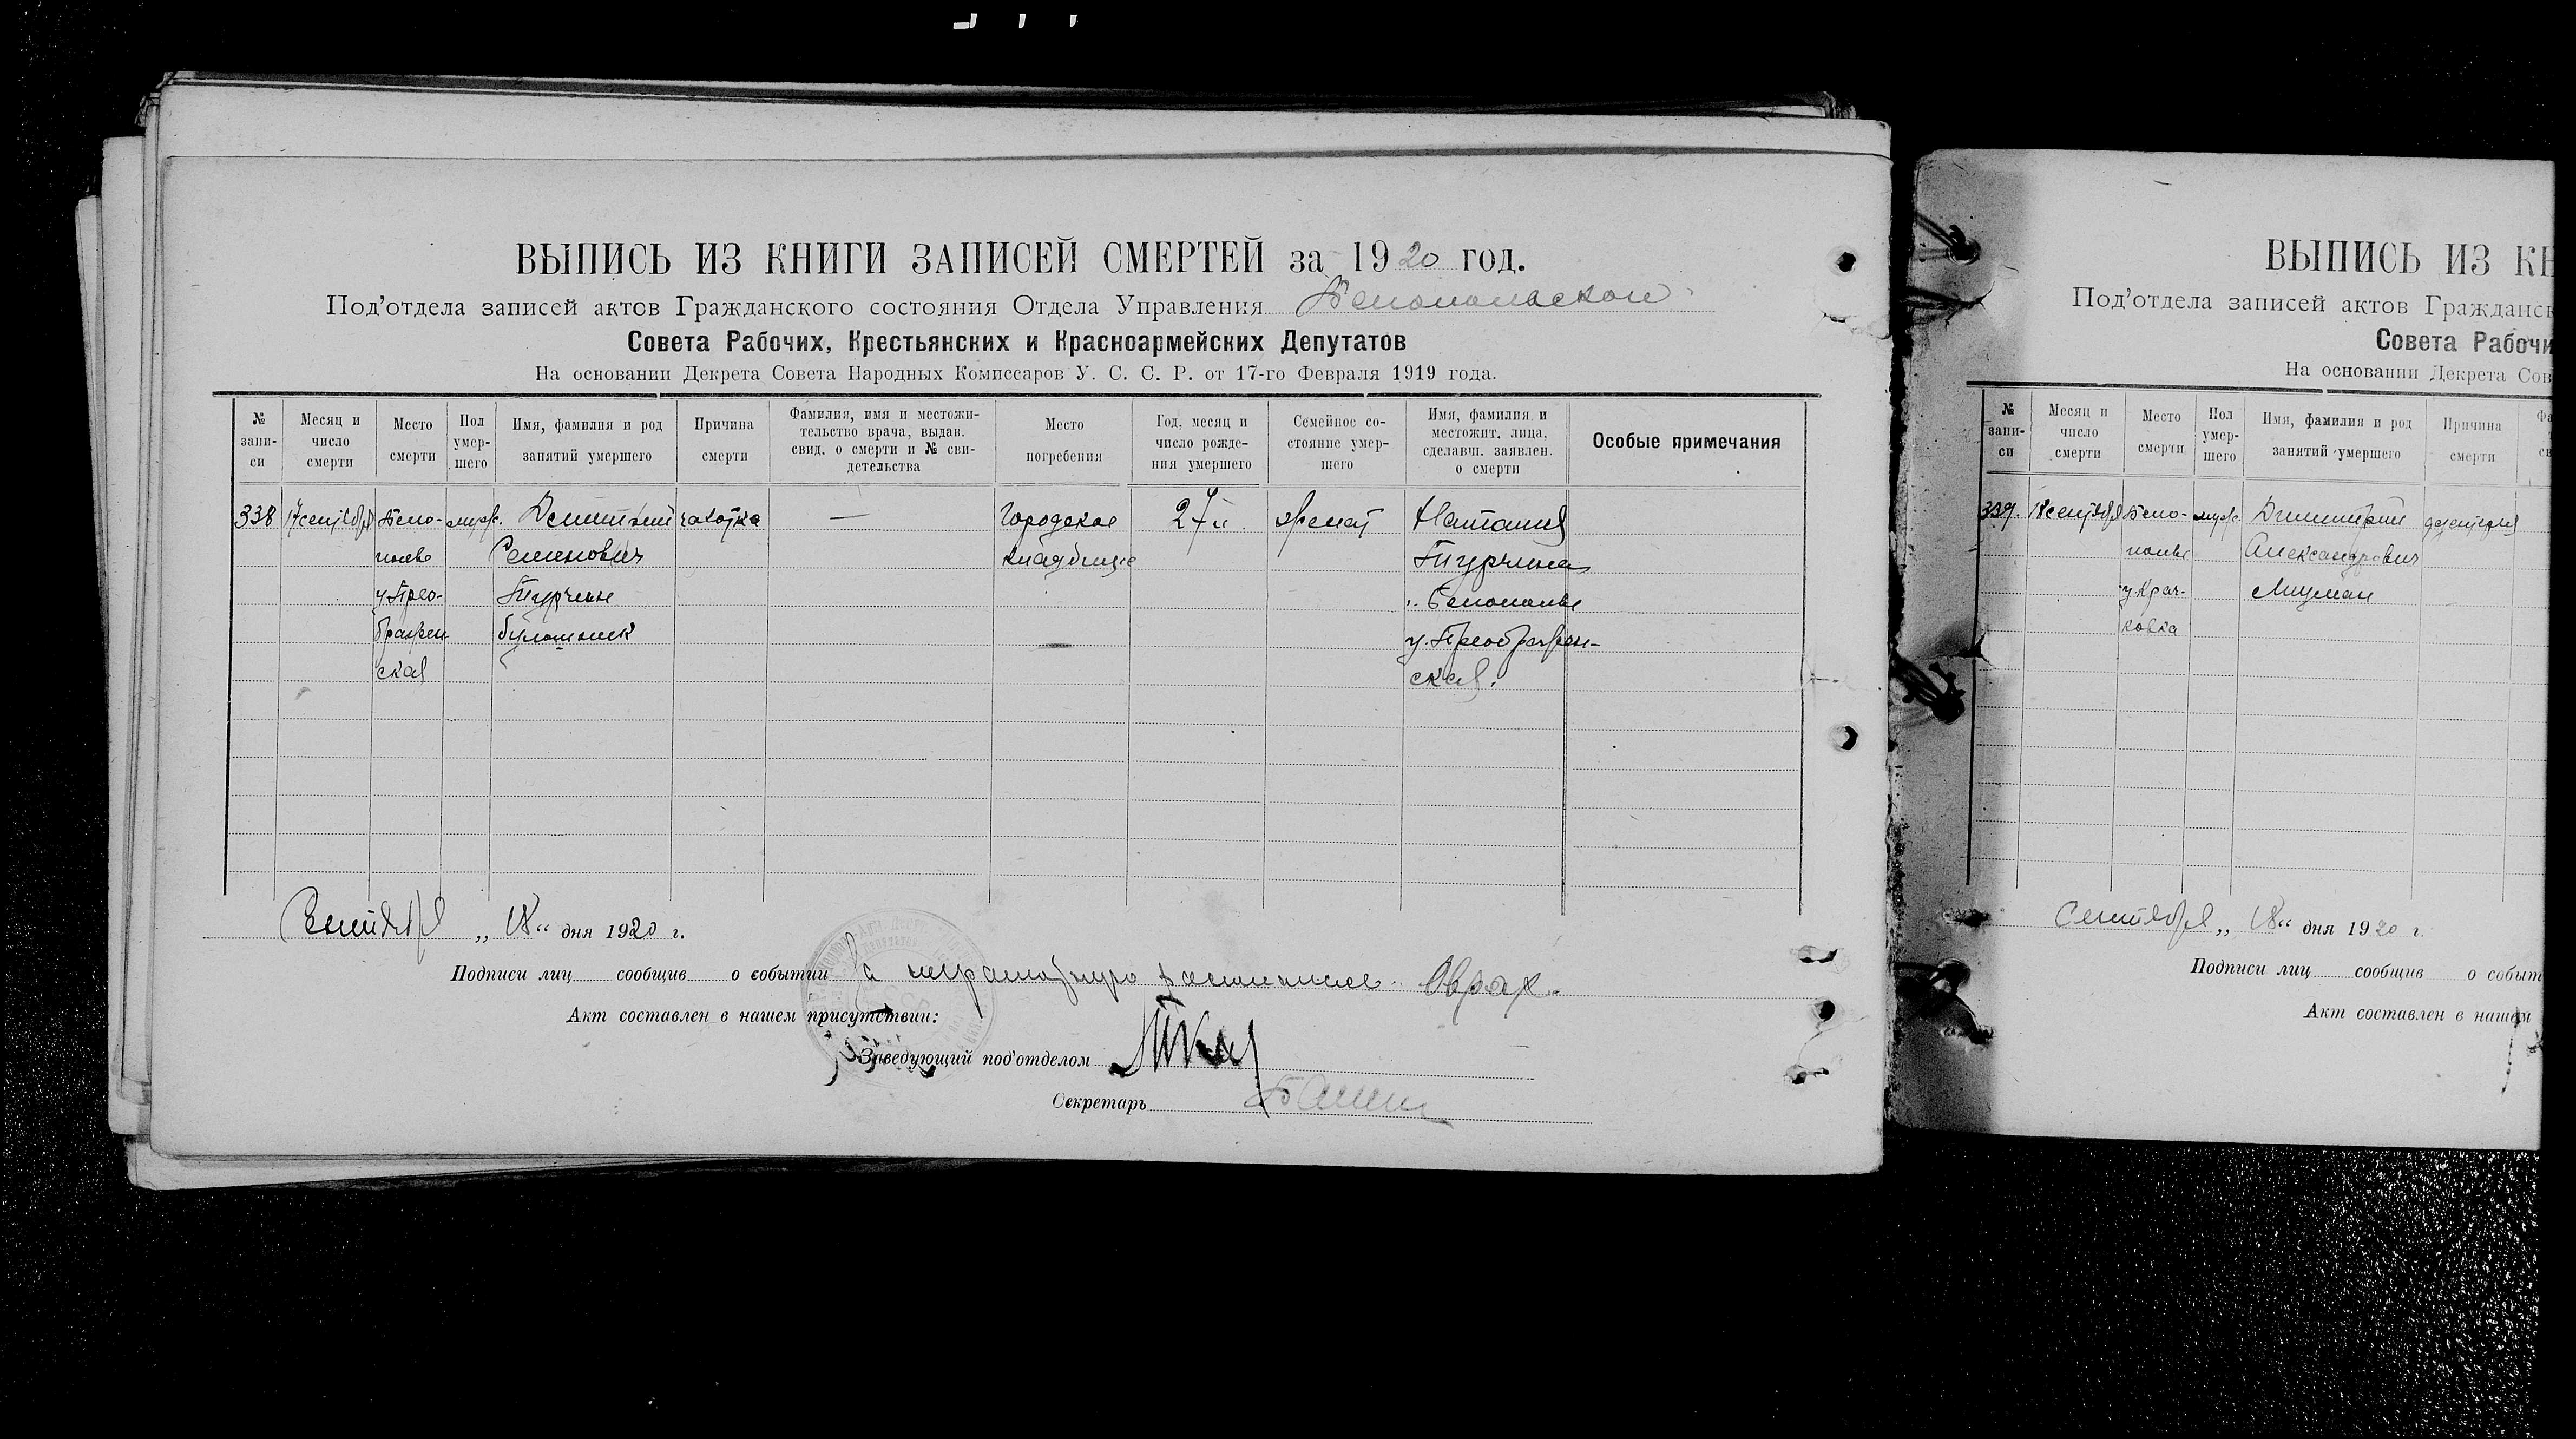 ВЫПИСЬ ИЗ КНИГИ ЗАПИСЕЙ СМЕРТЕЙ за 1920 год.
Под'отдела записей актов Гражданского состояния Отдела Управления Белопольского
Совета Рабочих, Крестьянских и Красноармейских Депутатов
На основании Декрета Совета Народных Комиссаров У. С. С. Р. от 17-го Февраля 1919 года.
№ запи-си
Месяц и число смерти
Место смерти
Пол умер-шего
Имя, фамилия и род занятий умершего
Причина смерти
Фамилия, имя и местожи-тельство врача, выдав. свид. о смерти и № сви-детельства
Место погребения
Год, месяц и число рожде-ния умершего
Семейное со-стояние умер-шего
Имя, фамилия и местожит. лица, сделавш. заявлен. о смерти
Особые примечания
338 17 сентября Бело- муж. чахотка — Городское 27 л. женат Наталия
полье Семенович кладбище Турчина
у. Прео- Турчин Белополье
бражен- булошник у. Преображен-
ская ская.
Сентября „18“ дня 1920 г.
Подписи лиц сообщив о событии За неграмотную расписался
Акт составлен в нашем присутствии:
Заведующий под'отделом
Секретарь
ВЫПИСЬ ИЗ КН
Под'отдела записей актов Гражданск
Совета Рабочи
На основании Декрета Сов
№ запи-си
Месяц и число смерти
Место смерти
Пол умер-шего
Имя, фамилия и род занятий умершего
Причина смерти
339. 18 сентября Бело- муж. Дмитрий дизентерия
полье Александрович
у. Крач-
ковка
Сентября „18“ дня 1920 г.
Подписи лиц сообщив о событ
Акт составлен в нашем